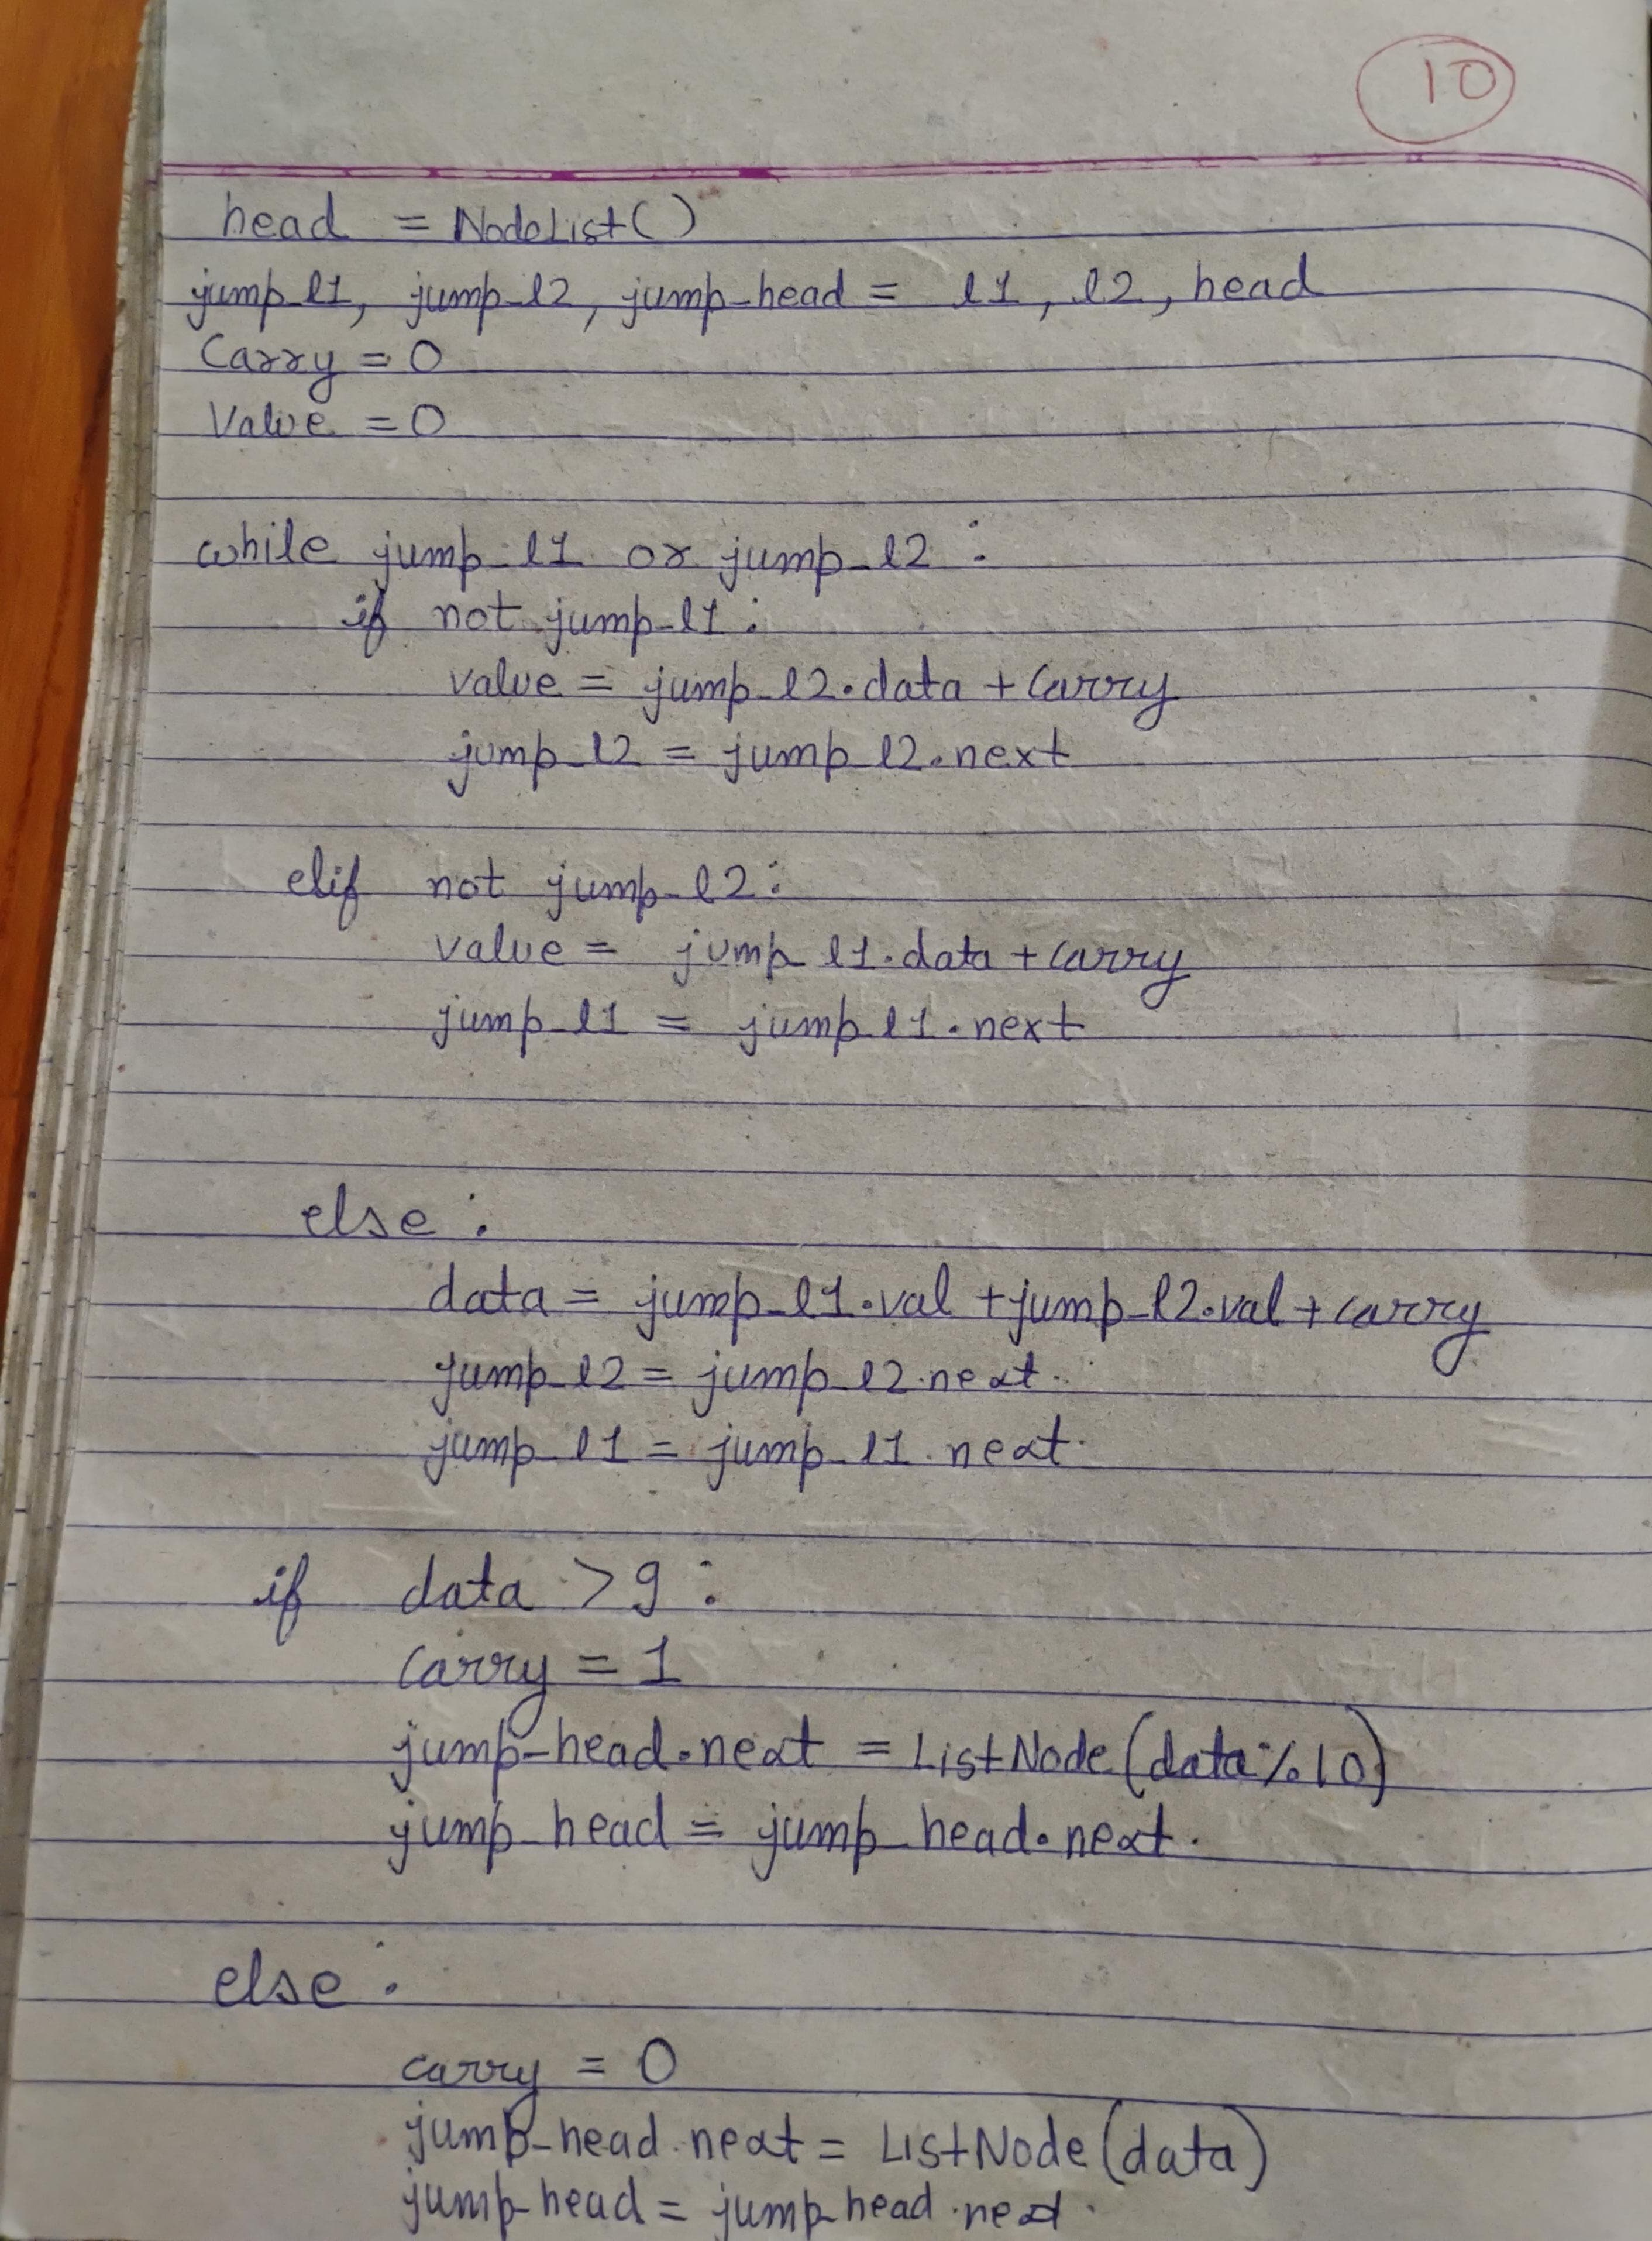 10
head = NodeList()
jump_l1, jump_l2, jump_head = l1, l2, head
Carry = 0
Value = 0
while jump_l1 or jump_l2 :
if not jump_l1 :
value = jump_l2.data + Carry
jump_l2 = jump_l2.next
elif not jump_l2 :
value = jump_l1.data + carry
jump_l1 = jump_l1.next
else :
data = jump_l1.val + jump_l2.val + carry
jump_l2 = jump_l2.next.
jump_l1 = jump_l1.next.
if data > 9 :
Carry = 1
jump_head.next = ListNode(data%10)
jump_head = jump_head.next.
else :
carry = 0
jump_head.next = ListNode(data)
jump_head = jump_head.next.